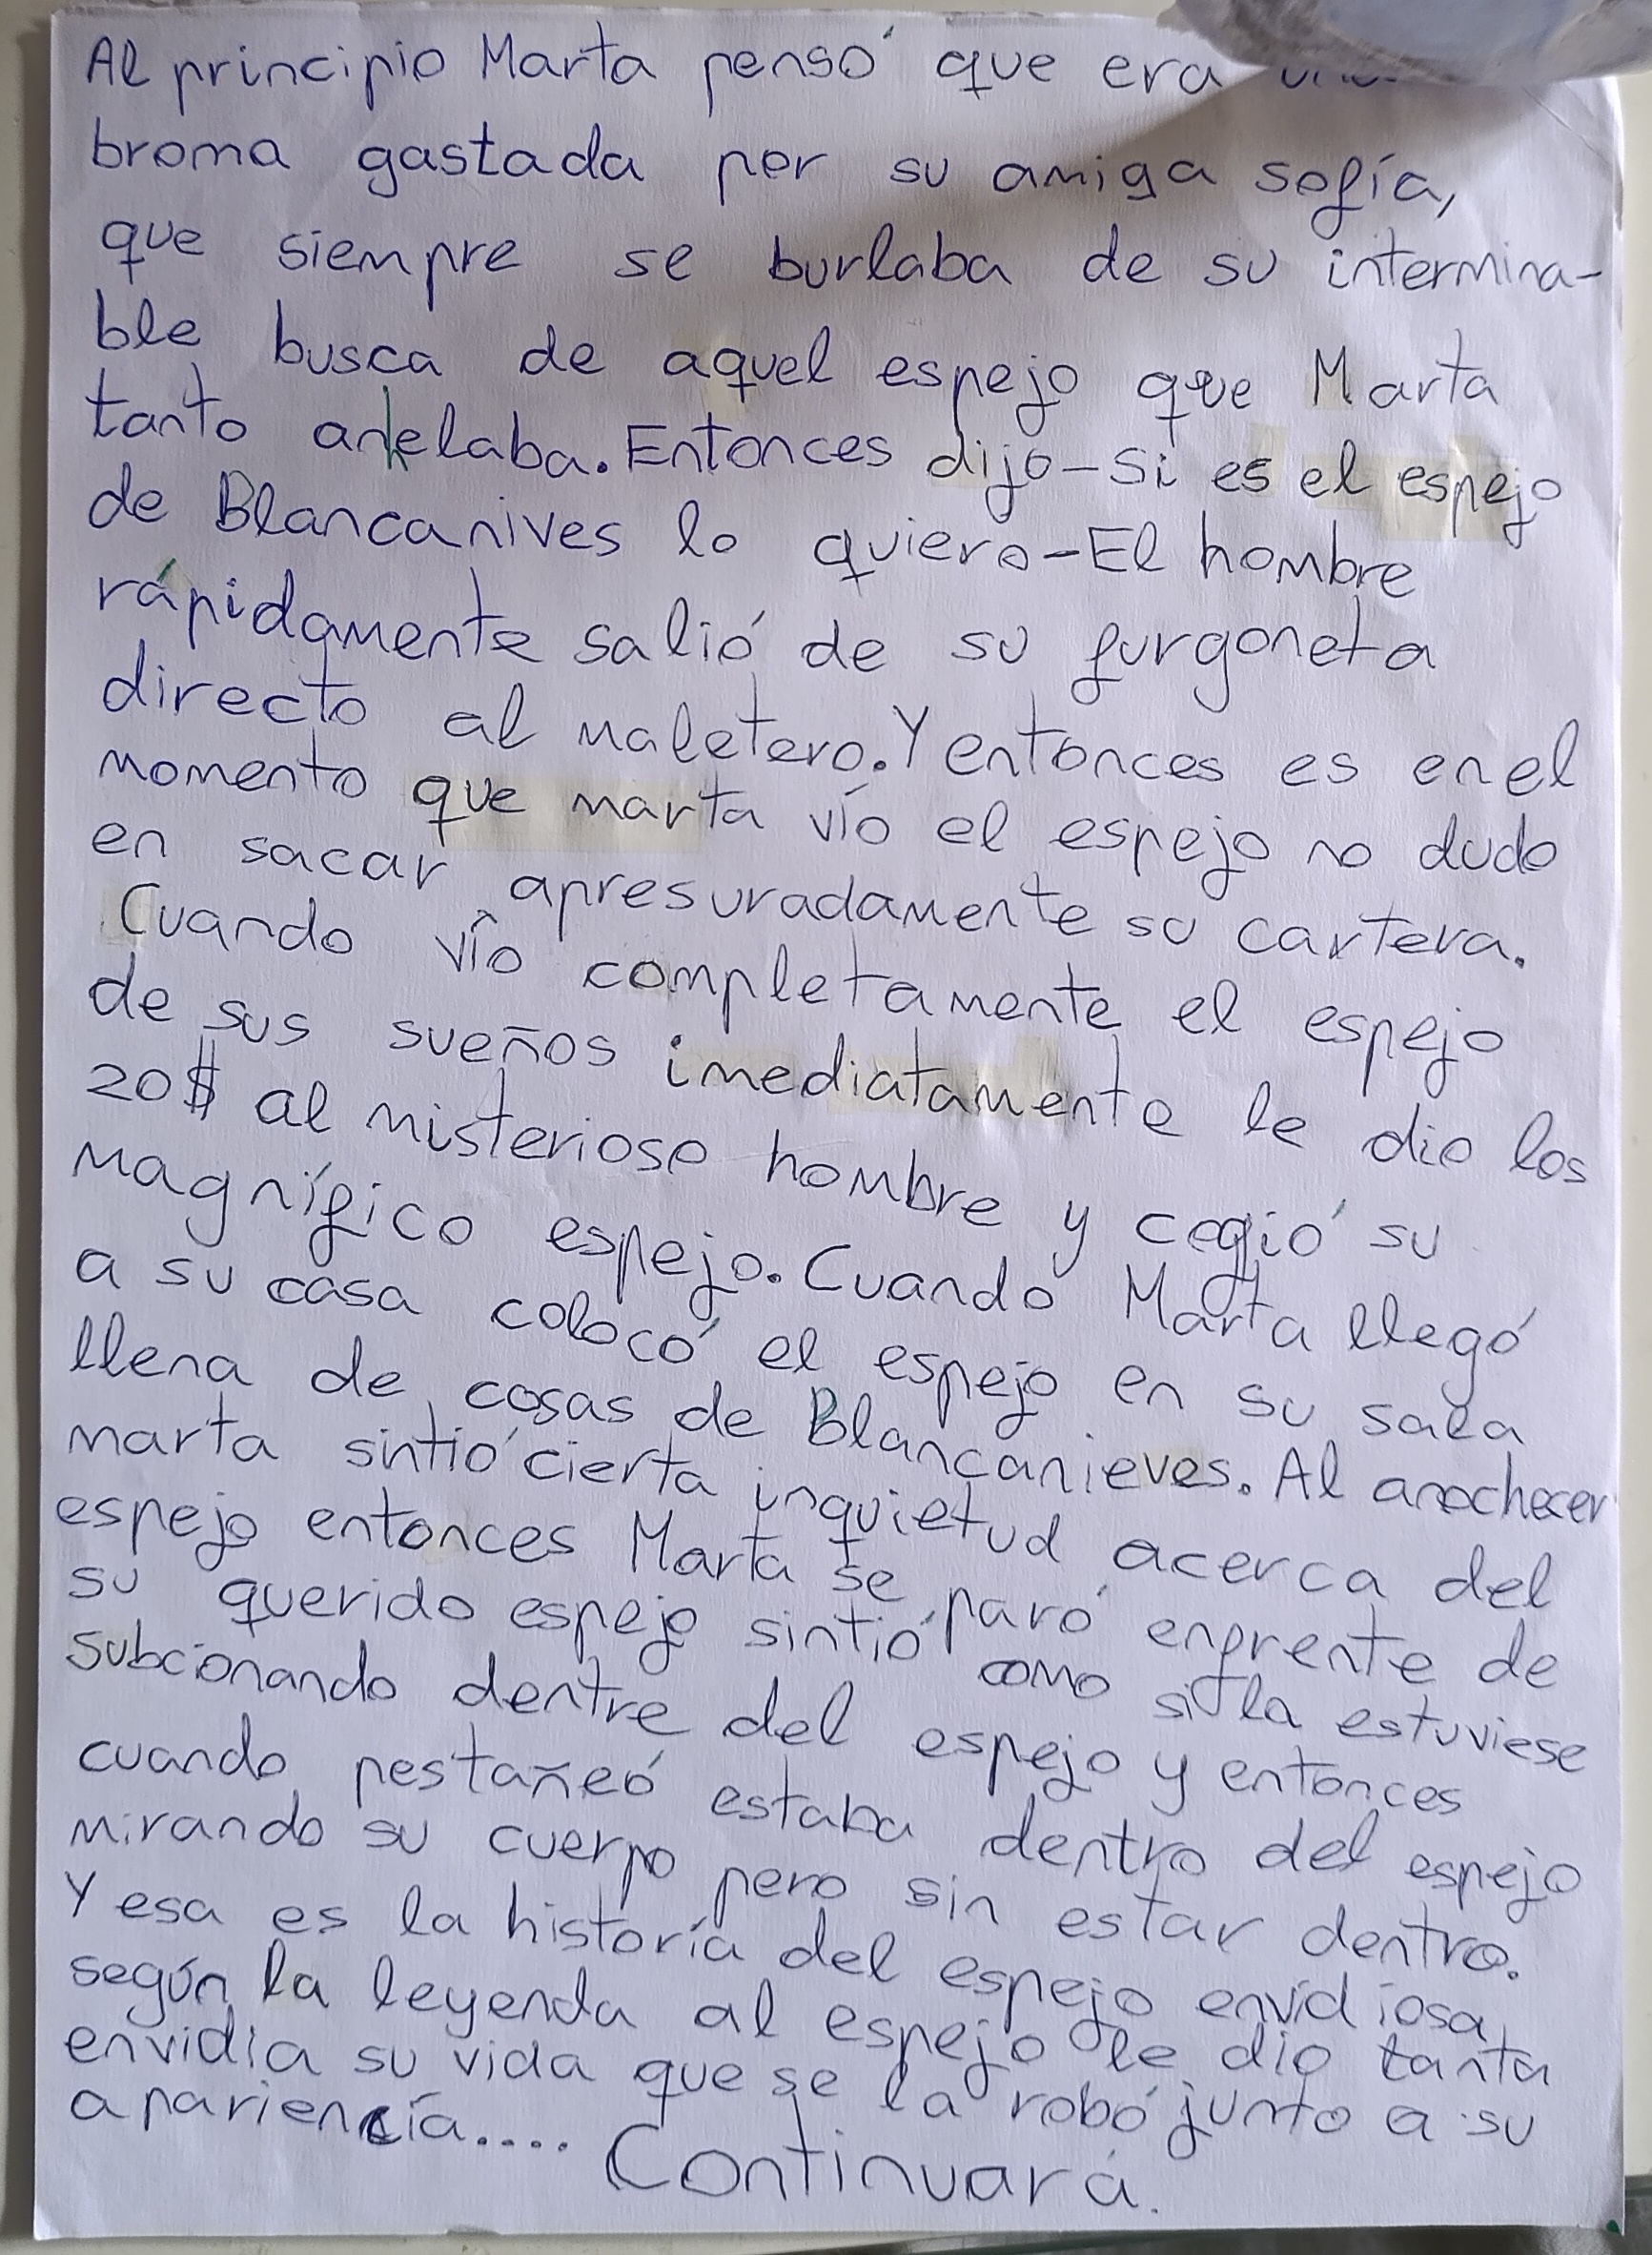 Al principio Marta pensó que era
broma gastada por su amiga sofía,
que siempre se burlaba de su intermina-
ble busca de aquel espejo que Marta
tanto anhelaba. Entonces dijo-Si es el espejo
de Blancanives lo quiero-El hombre
rápidamente salió de su furgoneta
directo al maletero. Y entonces es en el
momento que marta vío el espejo no dudo
en sacar apresuradamente su cartera.
Cuando vío completamente el espejo
de sus sueños imediatamente le dio los
20$ al misterioso hombre y cogió su
magnífico espejo. Cuando Marta llegó
a su casa colocó el espejo en su sala
llena de cosas de Blancanieves. Al anochecer
marta sintió cierta inquietud acerca del
espejo entonces Marta se paró enfrente de
su querido espejo sintió como si la estuviese
subcionando dentre del espejo y entonces
cuando pestañeó estaba dentro del espejo
mirando su cuerpo pero sin estar dentro.
Y esa es la historía del espejo envidiosa,
según la leyenda al espejo le dio tanta
envidia su vida que se la robó junto a su
apariencía....
Continuará.